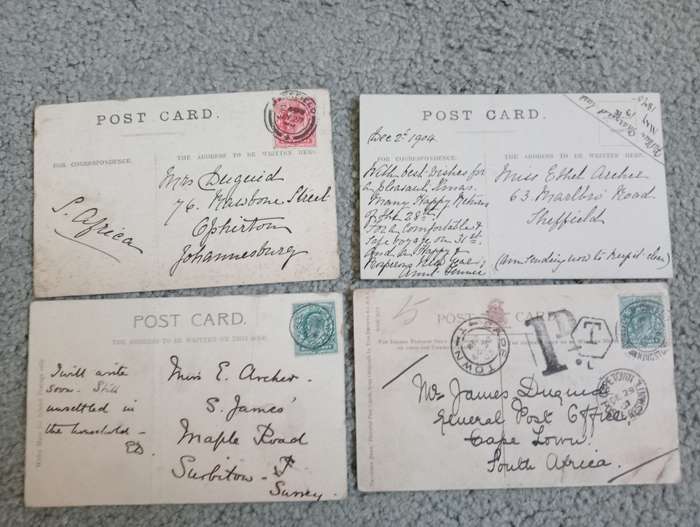 POST CARD.
FOR CORRESPONDENCE.
THE ADDRESS TO BE WRITTEN HERE.
S. Africa
Mrs Duguid
76. Hawbone Street
Ophirton
Johannesburg
POST CARD.
Dec 2nd 1904
FOR CORRESPONDENCE.
THE ADDRESS TO BE WRITTEN HERE.
With best wishes for
a pleasant Xmas.
Many Happy Returns
of the 28th!
for a Comfortable &
safe voyage on 31st;
and a Happy &
Prosperous New Year;
Aunt
Miss Ethel Archer
63. Marlbro' Road
Sheffield
(Am sending 
POST CARD.
THE ADDRESS TO BE WRITTEN ON THIS SIDE.
I will write
soon. Still
unsettled in
the household –
Miss E. Archer.
S. James'
Maple Road
Surbiton
Surrey
5
POST CARD
CAPE TOWN
1D
T
Mr James Duguid
General Post Office
Cape Town.
South Africa.